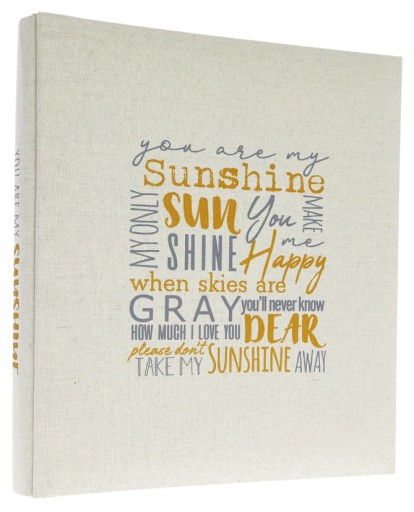 you are my
Sunshine
MY ONLY
SUN
SHINE
You
MAKE
me
Happy
when skies are
GRAY you'll never know
HOW MUCH I LOVE YOU DEAR
please don't
TAKE MY SUNSHINE AWAY
YOU ARE MY SUNSHINE